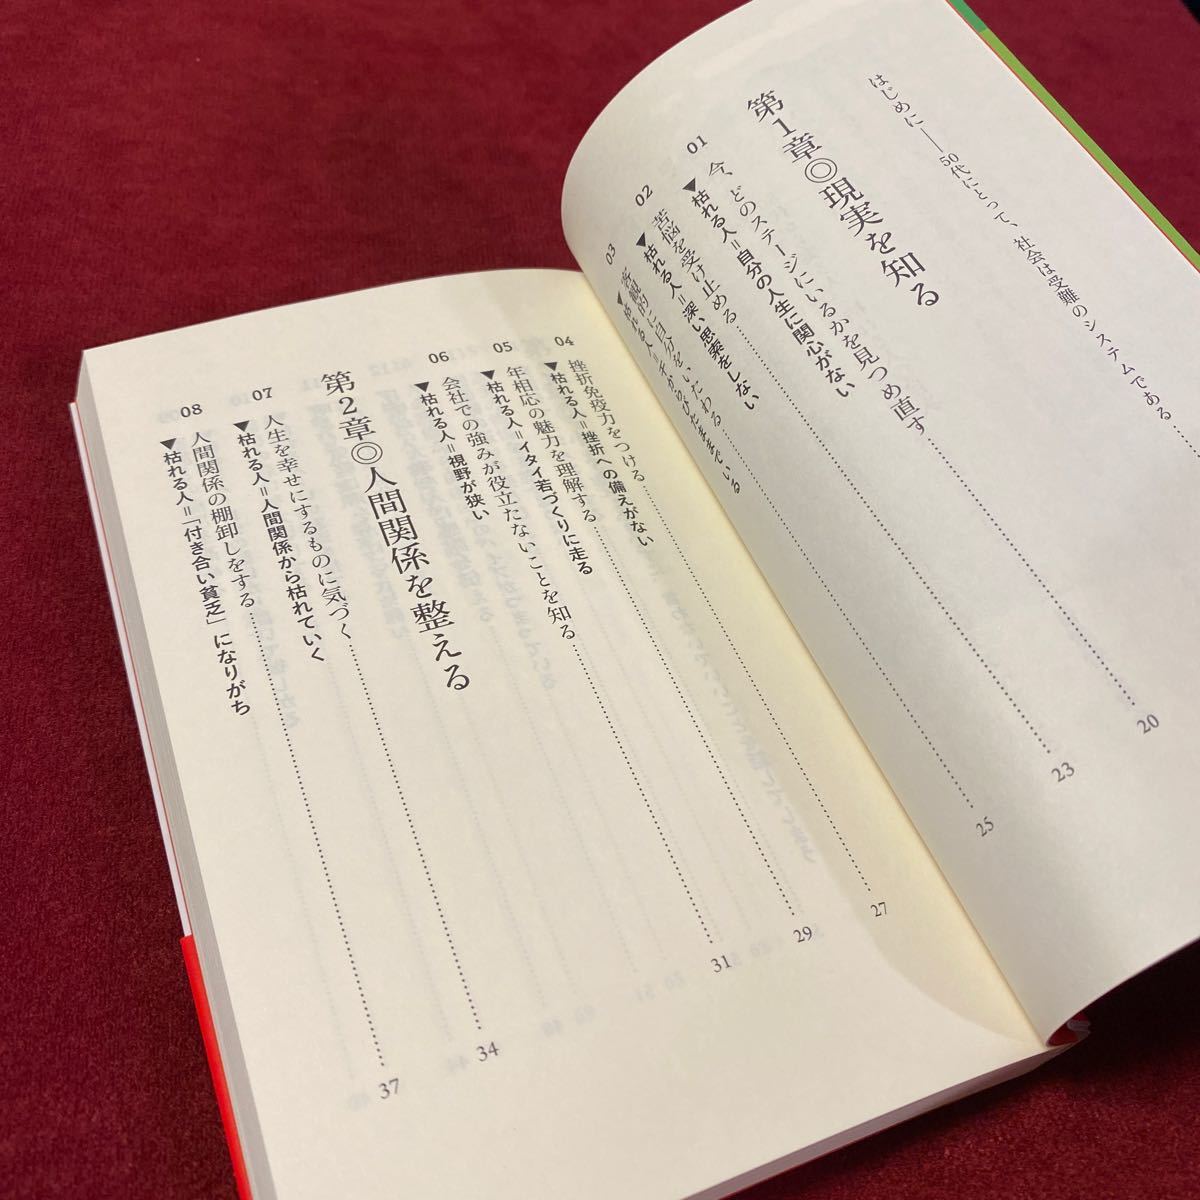 はじめに——50代にとって、社会は受難のシステムである
第1章◎現実を知る
01 今、どのステージにいるかを見つめ直す 20
▼枯れる人＝自分の人生に関心がない
02 苦悩を受け止める 23
▼枯れる人＝深い思索をしない
03 客観的に自分をいたわる 25
▼枯れる人＝
04 挫折免疫力をつける 27
▼枯れる人＝挫折への備えがない
05 年相応の魅力を理解する 29
▼枯れる人＝イタイ若づくりに走る
06 会社での強みが役立たないことを知る 31
▼枯れる人＝視野が狭い
第2章◎人間関係を整える
07 人生を幸せにするものに気づく 34
▼枯れる人＝人間関係から枯れていく
08 人間関係の棚卸しをする 37
▼枯れる人＝「付き合い貧乏」になりがち